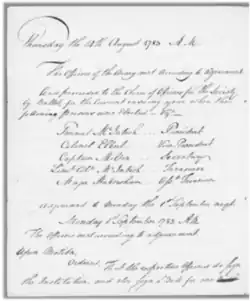 Thursday the 14th August 1783 A.M.
The Officers of the Army met according to Adjournment
And proceeded to the Choice of Officers for the Society
by Ballot, for the current ensuing year when the
following persons were elected
General McIntosh President
Colonel Vice President
Captain Secretary
Lieut. Col. McIntosh Treasurer
Major Treasurer
Adjourned to Monday the 1st September
Monday 1st September 1783 A.M.
The Officers met according to adjournment
Upon Motion,
Ordered, That the respective Officers do sign
the Institution, and also sign a for one